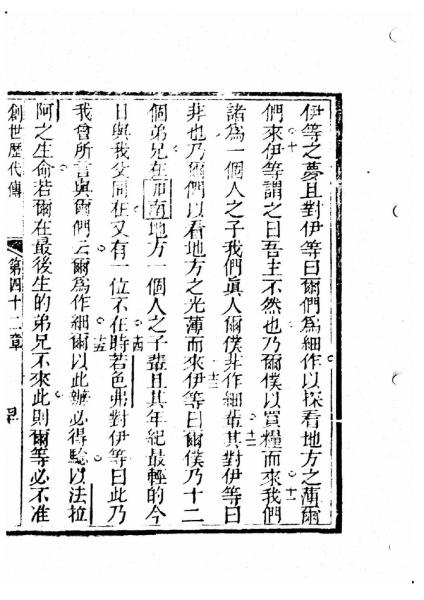 伊等之夢且對伊等曰爾們為細作以探看地方之薄爾
們來伊等謂之曰吾主不然也乃爾僕以買糧而來我們
十
十一
諸為一個人之子我們眞人爾僕非作細輩其對伊等曰
十二
非也乃爾們以看地方之光薄而來伊等曰爾僕乃十二
十三
個弟兄在加南地方一個人之子輩且其年紀最輕的今
日與我父同在又有一位不在時若色弗對伊等曰此乃
十四
我曾所言與爾們云爾為作細爾以此辦必得驗以法拉
十五
阿之生命若爾在最後生的弟兄不來此則爾等必不准
創世歷代傳
第四十二章